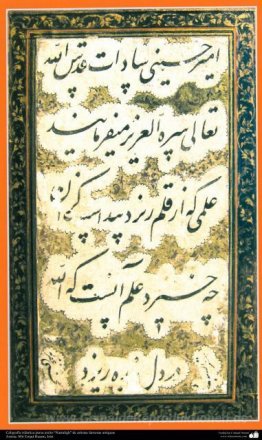 امیر حسینی سادات قدس الله
تعالی سره العزیز میفرمایند
علمی که از قلم ریزد پیداست کزان
چه خیزد علم آنست که الله
در دل بنده ریزد
Caligrafía islámica persa estilo "Nastaligh" de artistas famosas antiguas
Artista: Mir Emad Hasani, Irán